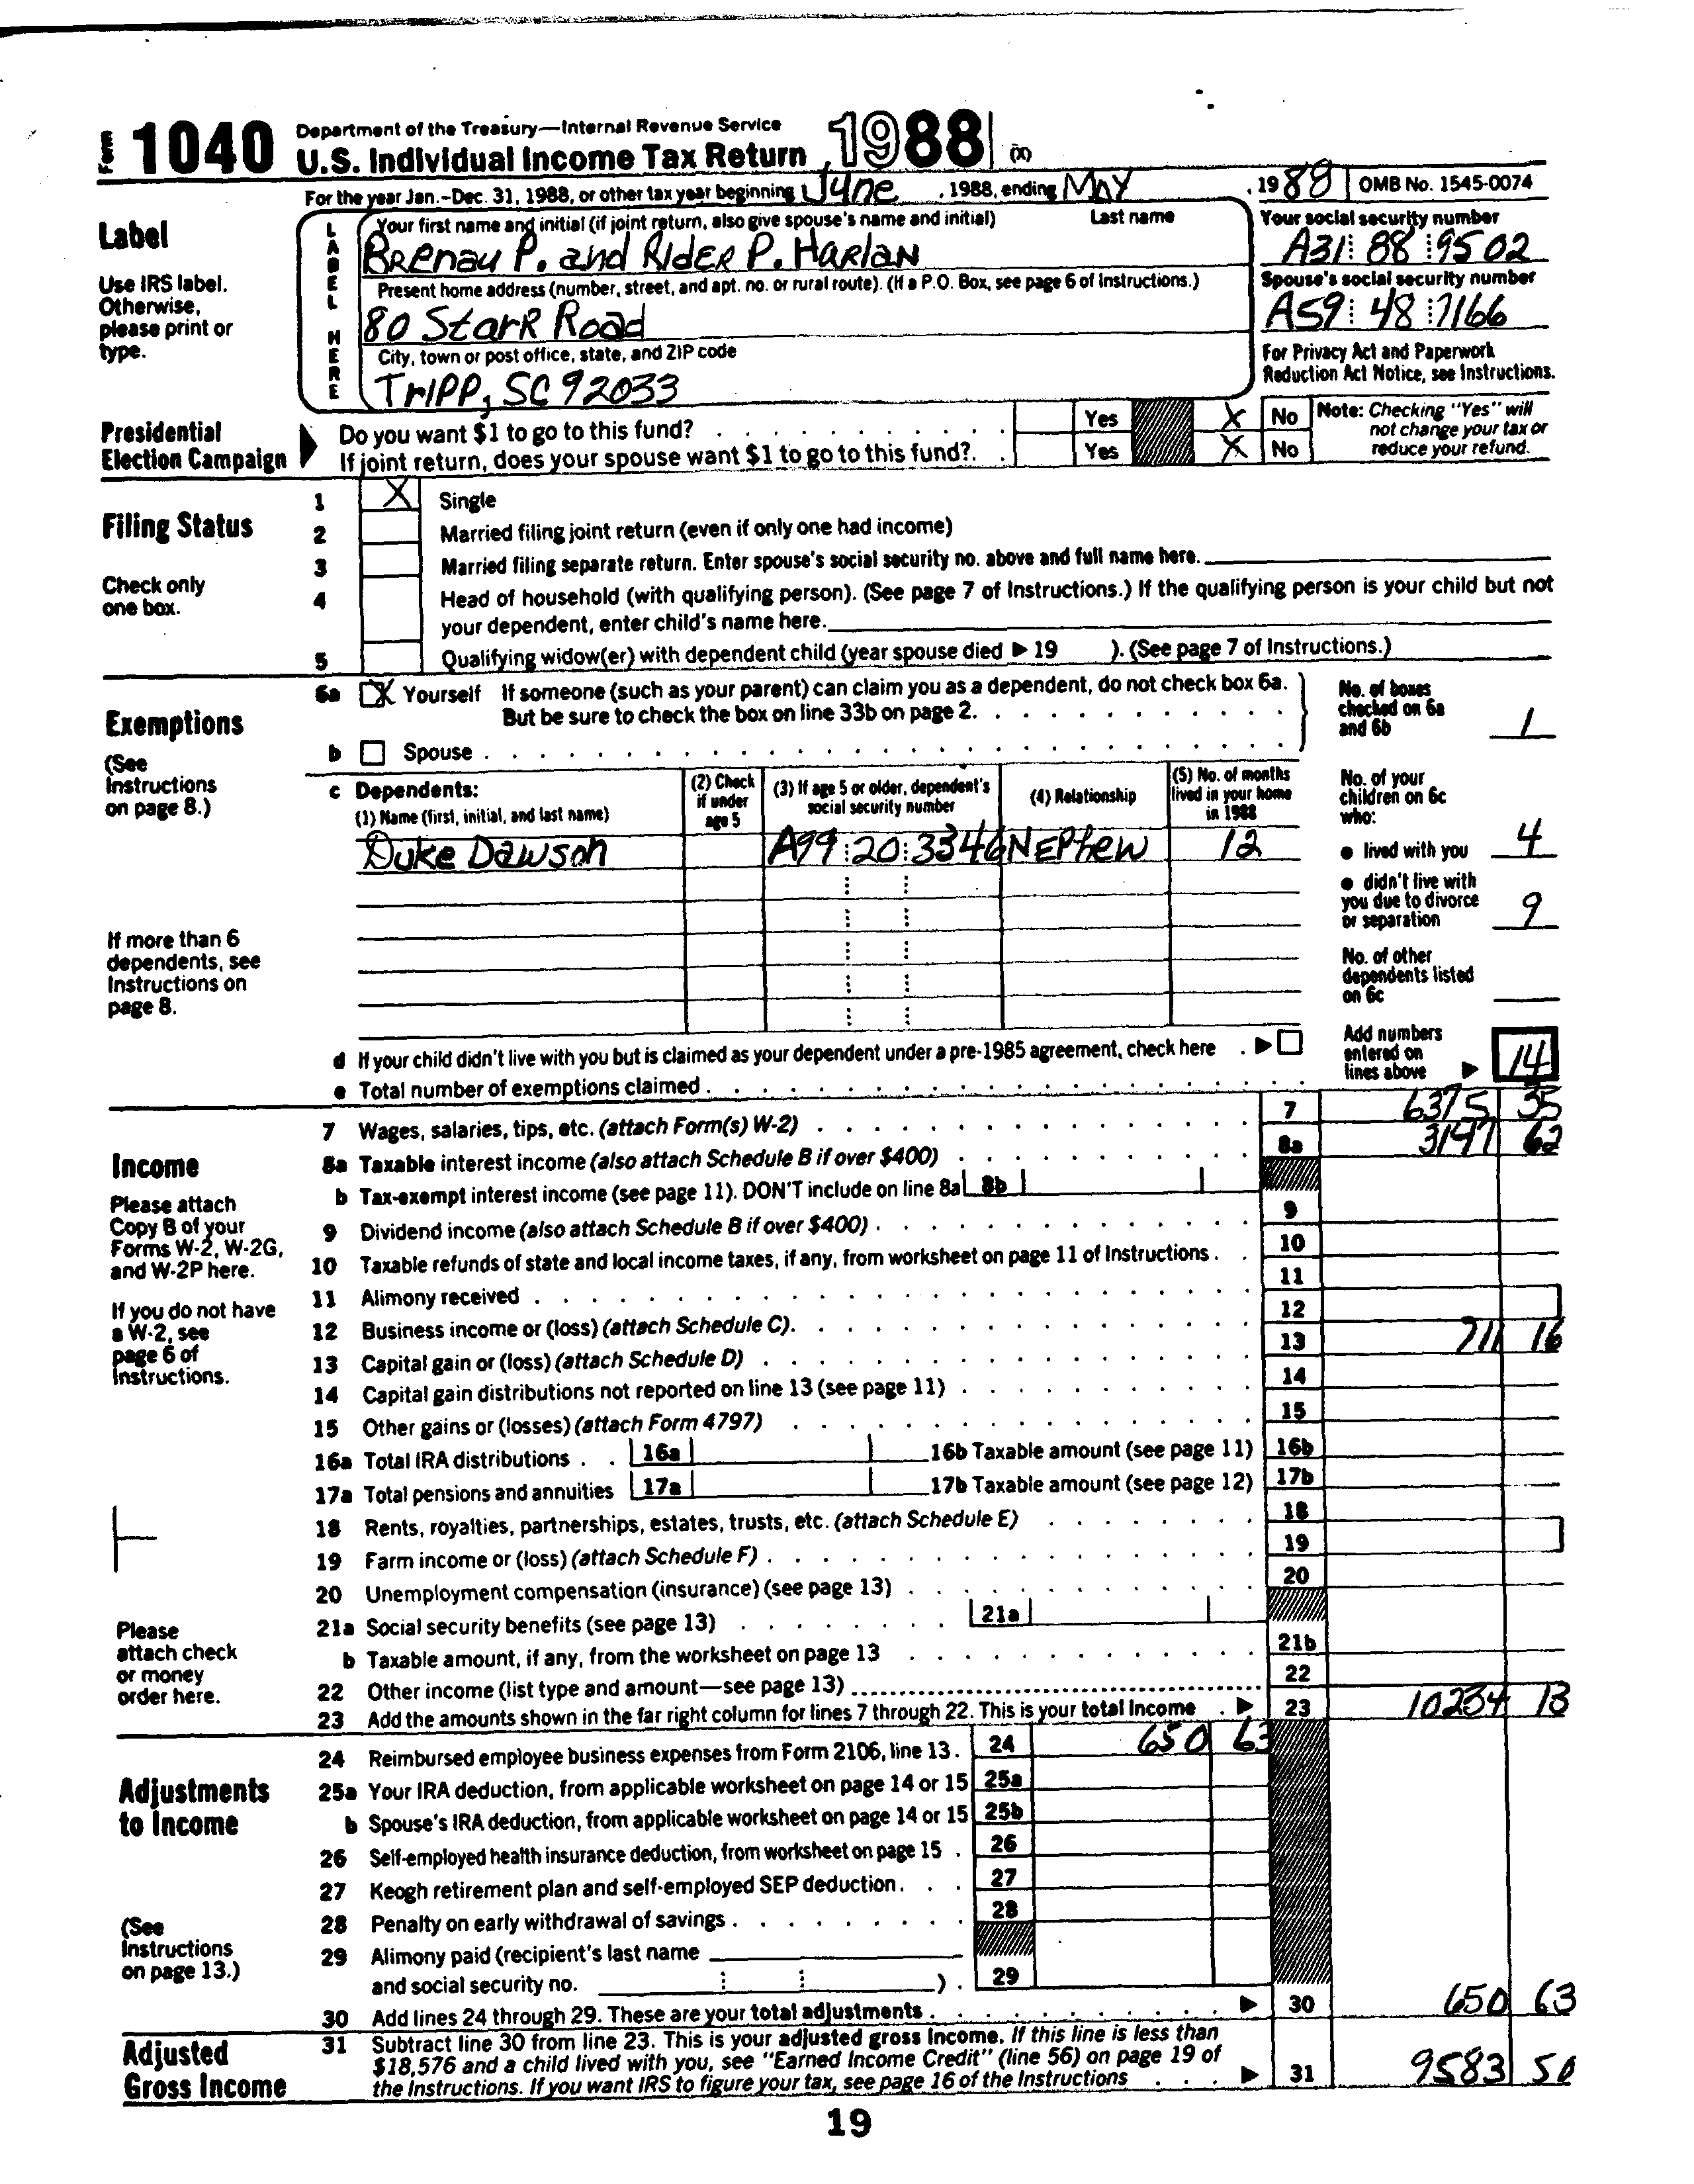 Form 1040 Department of the Treasury—Internal Revenue Service
U.S. Individual Income Tax Return 1988 (X)
For the year Jan.-Dec. 31, 1988, or other tax year beginning June , 1988, ending MAY , 1988 OMB No. 1545-0074
Label
Use IRS label.
Otherwise,
please print or
type.
LABEL HERE
Your first name and initial (if joint return, also give spouse's name and initial) Last name
BRenau P. and RIDER P. HARlAN
Present home address (number, street, and apt. no. or rural route). (If a P.O. Box, see page 6 of Instructions.)
80 StarR Road
City, town or post office, state, and ZIP code
TrIPP, SC 92033
Your social security number
A31 88 9502
Spouse's social security number
A59 48 7166
For Privacy Act and Paperwork
Reduction Act Notice, see Instructions.
Presidential
Election Campaign
Do you want $1 to go to this fund? Yes X No
If joint return, does your spouse want $1 to go to this fund?. Yes X No
Note: Checking "Yes" will
not change your tax or
reduce your refund.
Filing Status
Check only
one box.
1 X Single
2 Married filing joint return (even if only one had income)
3 Married filing separate return. Enter spouse's social security no. above and full name here.
4 Head of household (with qualifying person). (See page 7 of Instructions.) If the qualifying person is your child but not
your dependent, enter child's name here.
5 Qualifying widow(er) with dependent child (year spouse died ▶ 19 ). (See page 7 of Instructions.)
Exemptions
(See
Instructions
on page 8.)
If more than 6
dependents, see
Instructions on
page 8.
6a X Yourself If someone (such as your parent) can claim you as a dependent, do not check box 6a.
But be sure to check the box on line 33b on page 2.
b Spouse
No. of boxes
checked on 6a
and 6b 1
c Dependents:
(1) Name (first, initial, and last name)
(2) Check
if under
age 5
(3) If age 5 or older, dependent's
social security number
(4) Relationship
(5) No. of months
lived in your home
in 1988
Duke Dawson A99 20 3346 NEPhew 12
No. of your
children on 6c
who:
● lived with you 4
● didn't live with
you due to divorce
or separation 9
No. of other
dependents listed
on 6c
d If your child didn't live with you but is claimed as your dependent under a pre-1985 agreement, check here ▶
e Total number of exemptions claimed
Add numbers
entered on
lines above ▶ 14
Income
Please attach
Copy B of your
Forms W-2, W-2G,
and W-2P here.
If you do not have
a W-2, see
page 6 of
Instructions.
Please
attach check
or money
order here.
7 Wages, salaries, tips, etc. (attach Form(s) W-2) 7 6375 35
8a Taxable interest income (also attach Schedule B if over $400) 8a 3147 62
b Tax-exempt interest income (see page 11). DON'T include on line 8a 8b
9 Dividend income (also attach Schedule B if over $400) 9
10 Taxable refunds of state and local income taxes, if any, from worksheet on page 11 of Instructions 10
11 Alimony received 11
12 Business income or (loss) (attach Schedule C). 12
13 Capital gain or (loss) (attach Schedule D) 13 711 16
14 Capital gain distributions not reported on line 13 (see page 11) 14
15 Other gains or (losses) (attach Form 4797) 15
16a Total IRA distributions 16a 16b Taxable amount (see page 11) 16b
17a Total pensions and annuities 17a 17b Taxable amount (see page 12) 17b
18 Rents, royalties, partnerships, estates, trusts, etc. (attach Schedule E) 18
19 Farm income or (loss) (attach Schedule F) 19
20 Unemployment compensation (insurance) (see page 13) 20
21a Social security benefits (see page 13) 21a
b Taxable amount, if any, from the worksheet on page 13 21b
22 Other income (list type and amount—see page 13) 22
23 Add the amounts shown in the far right column for lines 7 through 22. This is your total income ▶ 23 10234 13
Adjustments
to Income
(See
Instructions
on page 13.)
24 Reimbursed employee business expenses from Form 2106, line 13. 24 650 63
25a Your IRA deduction, from applicable worksheet on page 14 or 15 25a
b Spouse's IRA deduction, from applicable worksheet on page 14 or 15 25b
26 Self-employed health insurance deduction, from worksheet on page 15 26
27 Keogh retirement plan and self-employed SEP deduction 27
28 Penalty on early withdrawal of savings 28
29 Alimony paid (recipient's last name
and social security no. ) 29
30 Add lines 24 through 29. These are your total adjustments ▶ 30 650 63
Adjusted
Gross Income
31 Subtract line 30 from line 23. This is your adjusted gross income. If this line is less than
$18,576 and a child lived with you, see "Earned Income Credit" (line 56) on page 19 of
the Instructions. If you want IRS to figure your tax, see page 16 of the Instructions ▶ 31 9583 50
19